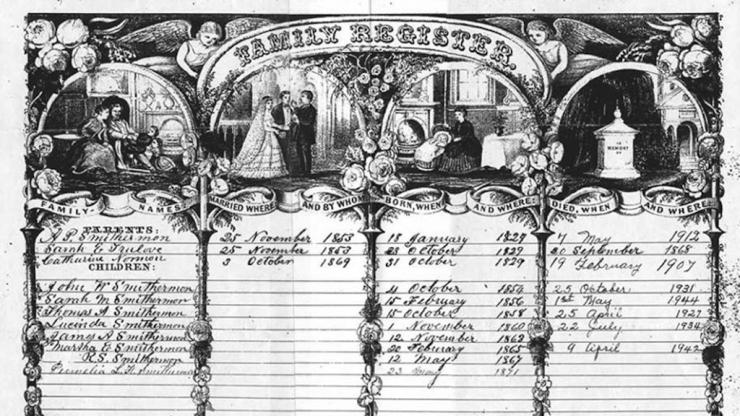 FAMILY REGISTER.
IN MEMORY OF
FAMILY NAMES MARRIED WHERE AND BY WHOM BORN, WHEN AND WHERE DIED, WHEN AND WHERE
PARENTS:
A P Smithermon 25 November 1853 18 January 1829 7 May 1912
Sarah E 25 November 1853 October 1829 20 September 1868
Catharine 3 October 1869 31 October 1829 19 February 1907
CHILDREN:
John W Smithermon 4 October 1854 25 October 1931
Sarah M Smithermon 15 February 1856 1st May 1944
Thomas A Smithermon 15 October 1858 25 April 1927
Lucinda Smithermon 1 November 1860 22 July 1934
James A Smithermon 12 November
Martha E Smithermon 20 1865 9 April
R S Smithermon 12 May 1867
Permelia L 23 May 1871